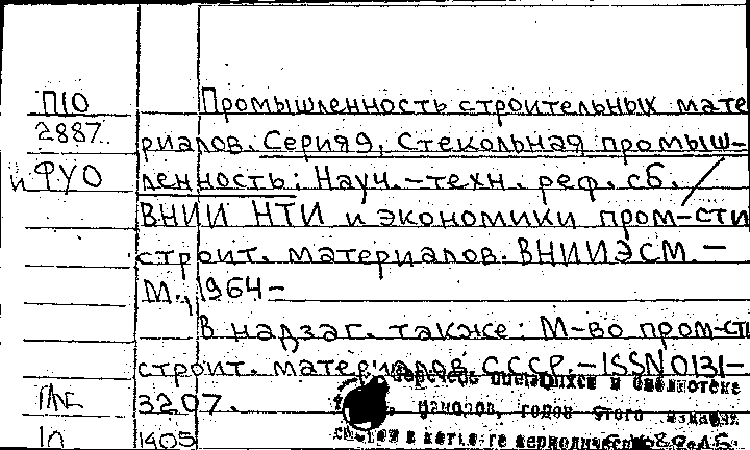 П10
2887
и ФУО
Промышленность строительных мате
риалов. Серия 9, Стекольная промыш-
ленность: Науч.-техн. реф. сб. /
ВНИИ НТИ и экономики пром-сти
строит. материалов. ВНИИЭСМ. —
М., 1964-
В надзаг. также: М-во пром-ст
строит. материалов СССР. - ISSN 0131-
3207.
1405
Перечень имеющихся в библиотеке
номеров, годов этого издания
смотри в